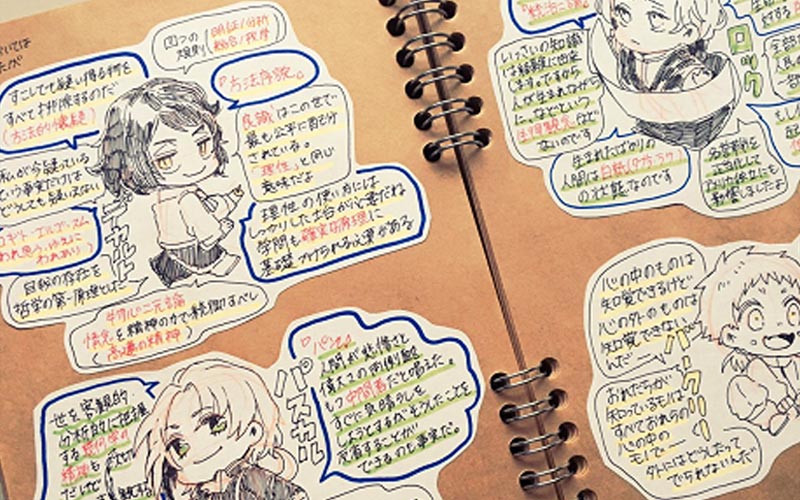 四つの規則
明証/分析
総合/枚挙
すこしでも疑い得る物を
すべて排除するのだ
(方法的懐疑)
『方法序説』
良識はこの世で
最も公平に配分
されている。
「理性」と同じ
意味だよ
私が今疑っている
という事実だけは
どうしても疑いえない
コギト・エルゴ・スム
われ思う、ゆえに
われあり
デカルト
理性の使い方には
しっかりした土台が必要だね
学問も確実な原理に
基礎づけられる必要がある
自我の存在を
哲学の第一原理とした
物心二元論
情念を精神の力で統御すべし
(高邁の精神)
世を客観的
分析的に把握
する幾何学の
精神も
パスカル
『パンセ』
人間が悲惨さと
偉大さの両側面を
もつ中間者だと唱えた。
すぐに気晴らしを
しようとするがそうしたことを
反省することが
できるのも事実だ。
いっさいの知識
は経験に由来
します。ですから
人が生まれながら
に。などという
生得観念など
ないのです
ロック
生まれたばかりの
人間は白紙(タブラ・ラサ)
の状態なのです
名誉革命を
正当化して
アメリカ独立にも
影響しましたよ
心の中のものは
知覚できるけど
心の外のものは
知覚できないん
だ
バークリー
おれたちが
知っているものは
すべておれらの
心の中の
モノでー
外にはどうしたって
でられないんだ